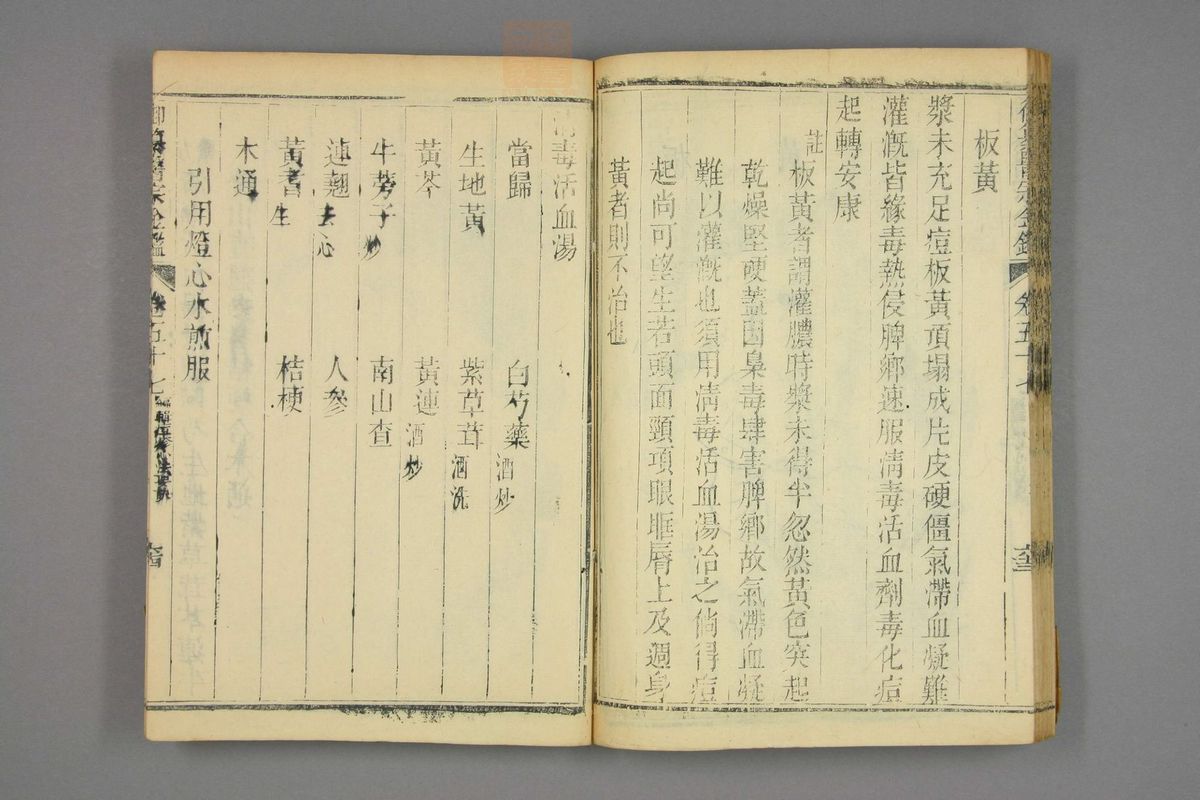 板黃
漿未充足痘板黃頂塌成片皮硬僵氣滯血凝難
灌漑皆緣毒熱侵脾鄉速服淸毒活血劑毒化痘
起轉安康
註板黃者謂灌膿時漿未得半忽然黃色突起
乾燥堅硬蓋因梟毒肆害脾鄉故氣滯血凝
難以灌漑也須用淸毒活血湯治之倘得痘
起尚可望生若頭面頸項眼眶脣上及週身
黃者則不治也
淸毒活血湯
當歸 白芍藥酒炒
生地黃 紫草茸酒洗
黃芩 黃連酒炒
牛蒡子炒 南山查
連翹去心 人參
黃耆生 桔梗
木通
引用燈心水煎服
御纂醫宗金鑑 卷五十七